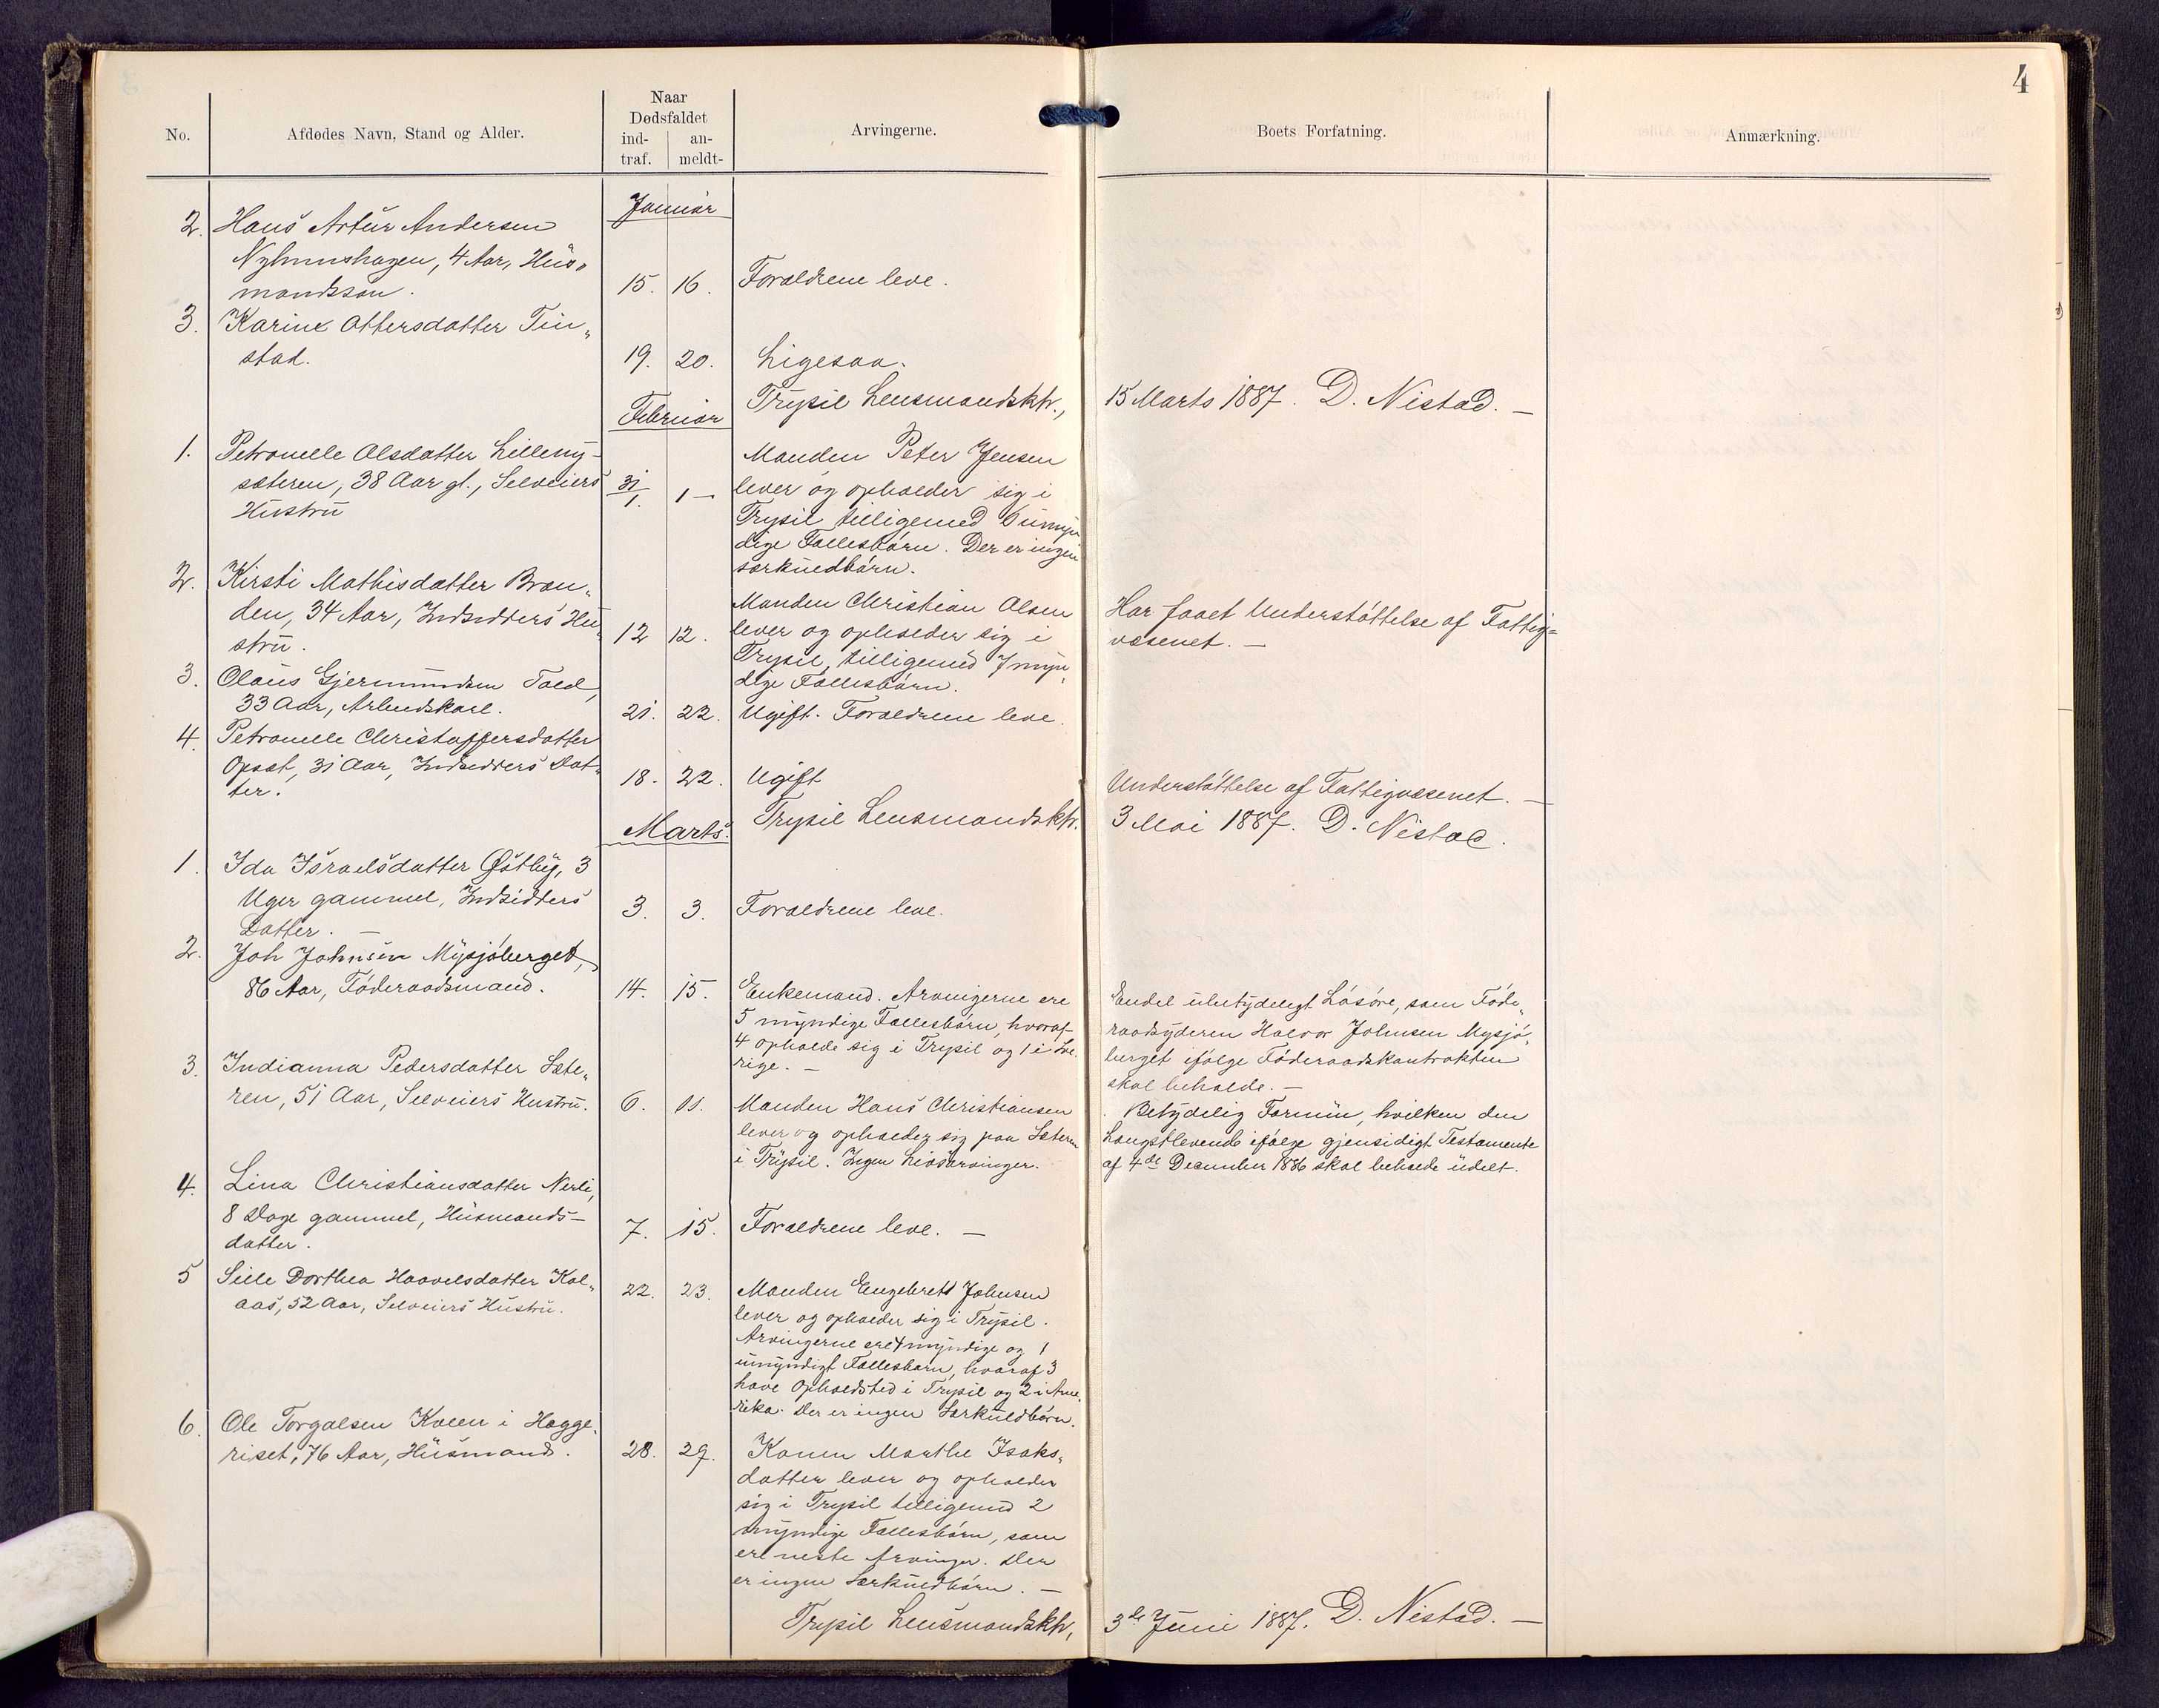 4
No.
Afdødes Navn, Stand og Alder.
Naar
Dødsfaldet
ind-
traf.
an-
meldt-
Arvingerne.
Boets Forfatning.
Anmærkning.
Januar
2. Hans Artur Andersen
Nyhuushagen, 4 Aar, Hus„
mandssøn. 15. 16. Forældrene leve.
3. Karine Ottersdatter Tin„
stad. 19. 20. Ligesaa.
Trysil Lensmandsktr., 15 Marts 1887. D. Nistad. —
Februar
1. Petronelle Olsdatter Lilleny-
sæteren, 38 Aar gl., Selveiers
Hustru
31/1. 1 —
Manden Peter Jensen
lever og opholder sig i
Trysil tilligemed 6 umyn
dige Fællesbørn. Der er ingen
særkuldbørn.
2. Kirsti Mathisdatter Bræn„
den, 34 Aar, Indsidders Hu„
stru.
12 12.
Manden Christian Olsen
lever og opholder sig i
Trysil, tilligemed 7 myn„
dige Fællesbørn.
Har faaet Understøttelse af Fattig=
væsenet. —
3. Olaus Gjermundsen Told,
33 Aar, Arbeidskarl. 21. 22. Ugift. Forældrene leve.
4. Petronelle Christoffersdatter
Opsæt, 31 Aar, Indsidders Dat„
ter.
18. 22. Ugift
Understøttelse af Fattigvæsenet. —
Trysil Lensmandsktr. 3 Mai 1887. D. Nistad.
Marts.
1. Ida Israelsdatter Østby, 3
Uger gammel, Indsidders
Datter. —
3. 3. Forældrene leve.
2. Joh Johnsen Mysjøberget,
86 Aar, Føderaadsmand.
14. 15.
Enkemand. Arvingerne ere
5 myndige Fællesbørn, hvoraf
4 opholde sig i Trysil og 1 i Sve„
rige. —
Endel ubetydeligt Løsøre, som Føde„
raadsyderen Halvor Johnsen Mysjø„
berget ifølge Føderaadskontrakten
skal beholde. —
3. Indianna Pedersdatter Sæte„
ren, 51 Aar, Selveiers Hustru.
6. 11.
Manden Hans Christiansen
lever og opholder sig paa Sæteren
i Trysil. Ingen Livsarvinger.
Betydelig Formue, hvilken den
Længstlevende ifølge gjensidigt Testamente
af 4de December 1886 skal beholde udelt.
4. Lina Christiansdatter Nerli,
8 Dage gammel, Husmands-
datter.
7. 15. Forældrene leve. —
5 Sille Dorthea Haavelsdatter Kol„
aas, 52 Aar, Selveiers Hustru.
22. 23.
Manden Engebret Johnsen
lever og opholder sig i Trysil.
Arvingerne ere 4 myndige og 1
umyndigt Fællesbarn, hvoraf 3
have Opholdsted i Trysil og 2 i Ame„
rika. Der er ingen Særkuldbørn.
6. Ole Torgalsen Kveen i Hagge„
riset, 76 Aar, Husmand.
28. 29.
Konen Marthe Isaks„
datter lever og opholder
sig i Trysil tilligemed 2
myndige Fællesbørn, som
ere neste Arvinger. Der
er ingen Særkuldbørn. —
Trysil Lensmandsktr, 3de Juni 1887. D. Nistad. —